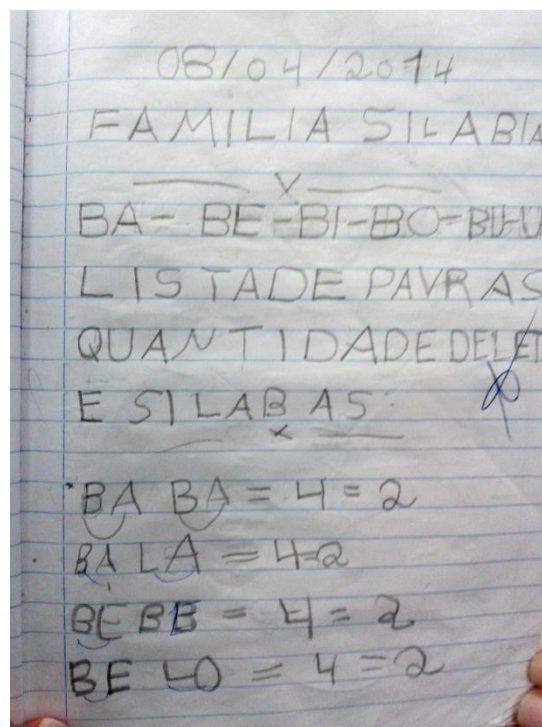 08/04/2014
FAMILIA SILABIA
BA- BE-BI-BO-BU-U
LISTADE PAVRAS
QUANTIDADE DE LET
E SILABAS:
BA BA = 4 = 2
BA LA = 4=2
BEBE = 4 = 2
BE LO = 4 = 2